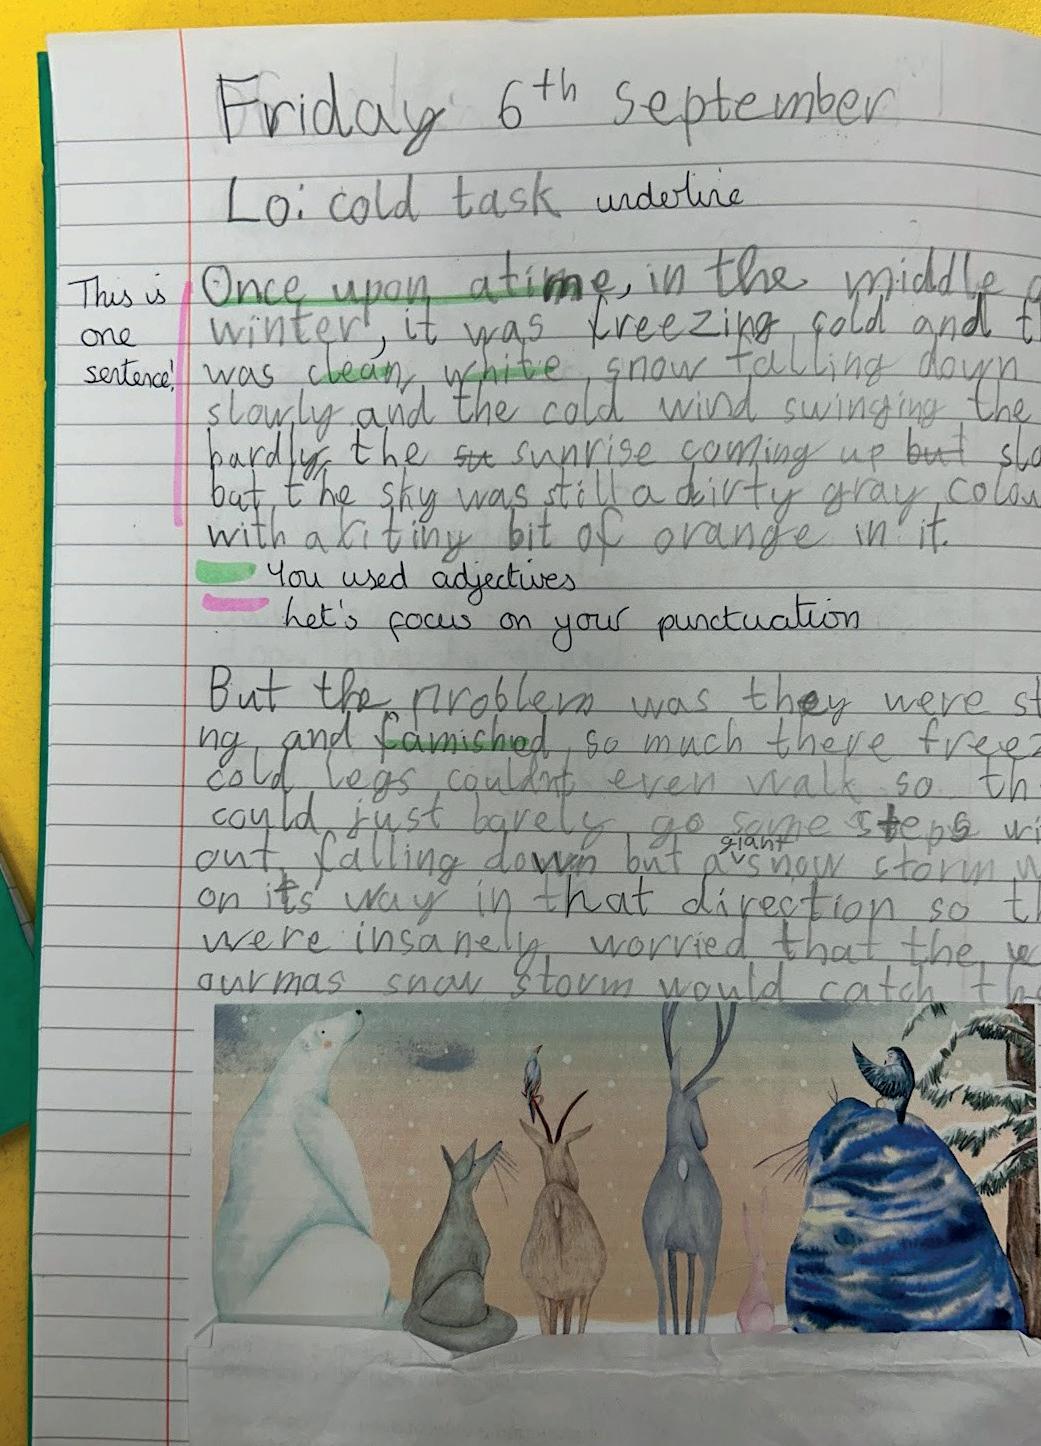 Friday 6th September
Lo: cold task underline
This is
one
sentence!
Once upon atime, in the middle
winter, it was freezing cold and
was clean, white, snow falling down
slowly and the cold wind swinging the
hardly, the su sunrise coming up but
but the sky was still a dirty gray
with a tiny bit of orange in it.
You used adjectives
Let's focus on your punctuation
But the problem was they were
ng and famished so much there
cold legs couldnt even walk so
could just barely go some steps
out falling down but a giant snow storm
on its way in that direction so
were insanely worried that the
ourmas snow storm would catch